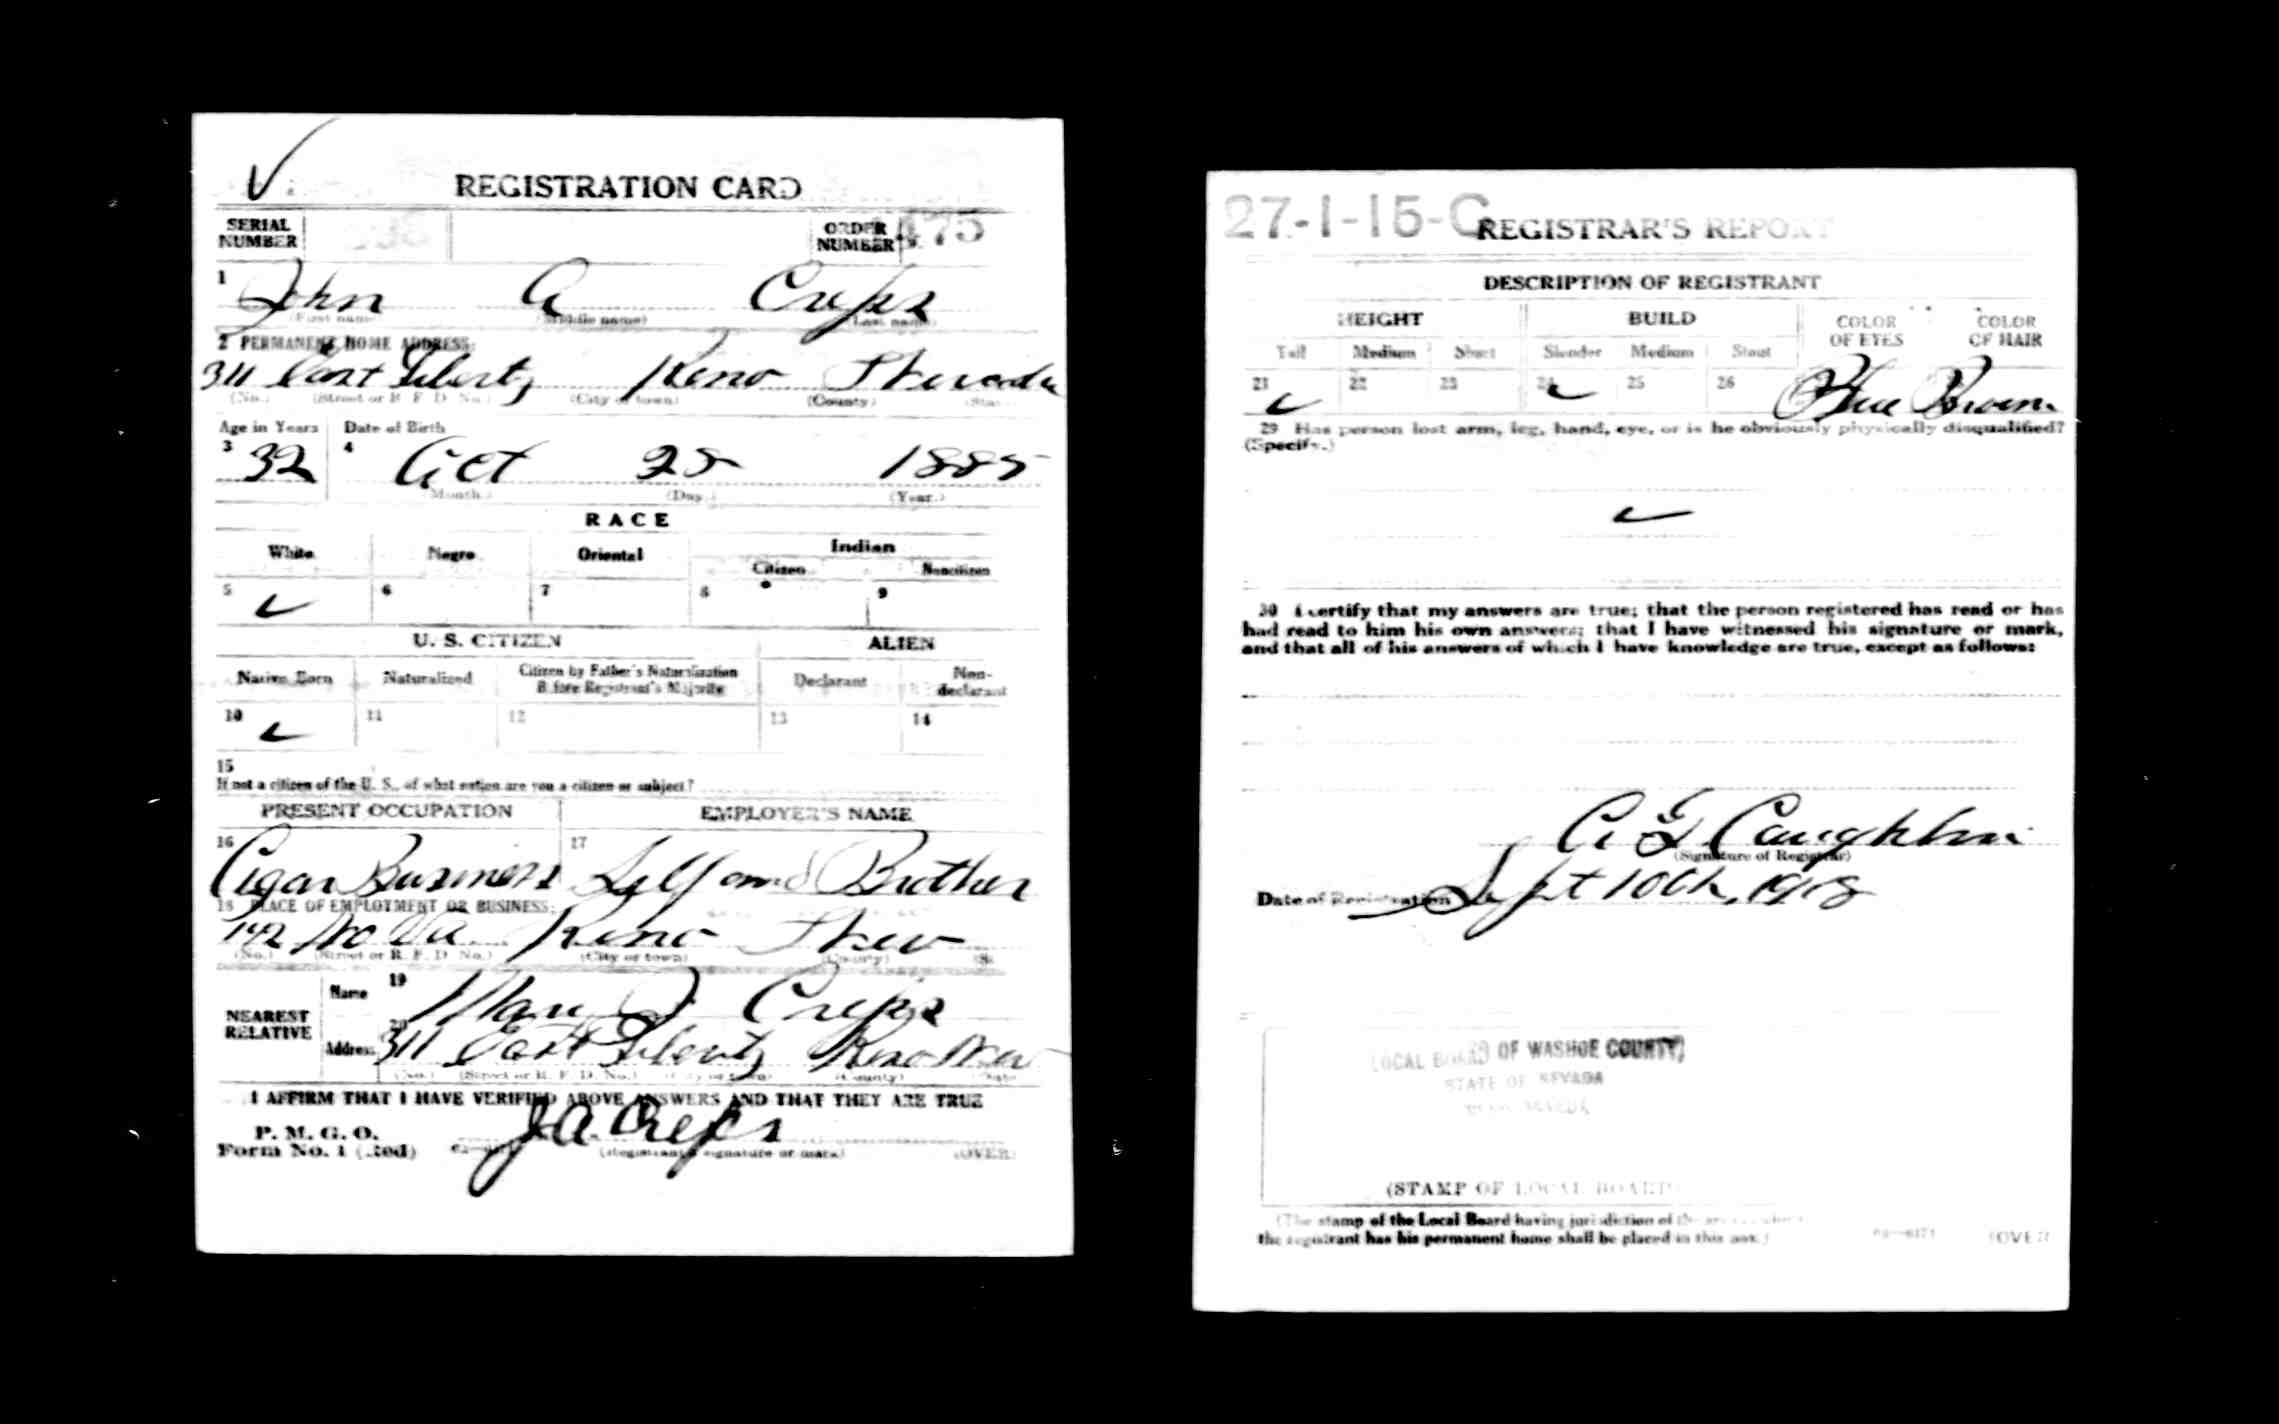 REGISTRATION CARD
SERIAL NUMBER
ORDER NUMBER 175
1 John A Creps
(First name) (Middle name) (Last name)
2 PERMANENT HOME ADDRESS:
311 East Liberty Reno Nevada
(No.) (Street or R. F. D. No.) (City or town) (County) (State
Age in Years Date of Birth
3 32 4 Oct 25 1885
(Month.) (Day.) (Year.)
RACE
White Negro Oriental Indian
Citizen Noncitizen
5 ✓ 6 7 8 9
U. S. CITIZEN ALIEN
Native Born Naturalized Citizen by Father's Naturalization Before Registrant's Majority Declarant Non-declarant
10 ✓ 11 12 13 14
15
If not a citizen of the U. S., of what nation are you a citizen or subject?
PRESENT OCCUPATION EMPLOYER'S NAME
16 Cigar Business 17 Self and Brother
18 PLACE OF EMPLOYMENT OR BUSINESS:
142 No Va. Reno Nev
(No.) (Street or R. F. D. No.) (City or town) (County) (S
NEAREST RELATIVE
Name 19 Creps
Address 20 311 East Liberty Reno Nev
(No.) (Street or R. F. D. No.) (City or town) (County) State
I AFFIRM THAT I HAVE VERIFIED ABOVE ANSWERS AND THAT THEY ARE TRUE
P. M. G. O.
Form No. 1 (Red) J. A. Creps
(Registrant's signature or mark) (OVER)
27-1-15-C REGISTRAR'S REPORT
DESCRIPTION OF REGISTRANT
HEIGHT BUILD COLOR OF EYES COLOR OF HAIR
Tall Medium Short Slender Medium Stout
21 ✓ 22 23 24 ✓ 25 26 Blue Brown
29 Has person lost arm, leg, hand, eye, or is he obviously physically disqualified?
(Specify.)
✓
30 I certify that my answers are true; that the person registered has read or has
had read to him his own answers; that I have witnessed his signature or mark,
and that all of his answers of which I have knowledge are true, except as follows:
Caughlin
(Signature of Registrar)
Date of Registration Sept 10th, 1918
LOCAL BOARD OF WASHOE COUNTY
STATE OF NEVADA
RENO NEVADA
(STAMP OF LOCAL BOARD)
(The stamp of the Local Board having jurisdiction of the area in which
the registrant has his permanent home shall be placed in this box.)
03—6171 (OVER